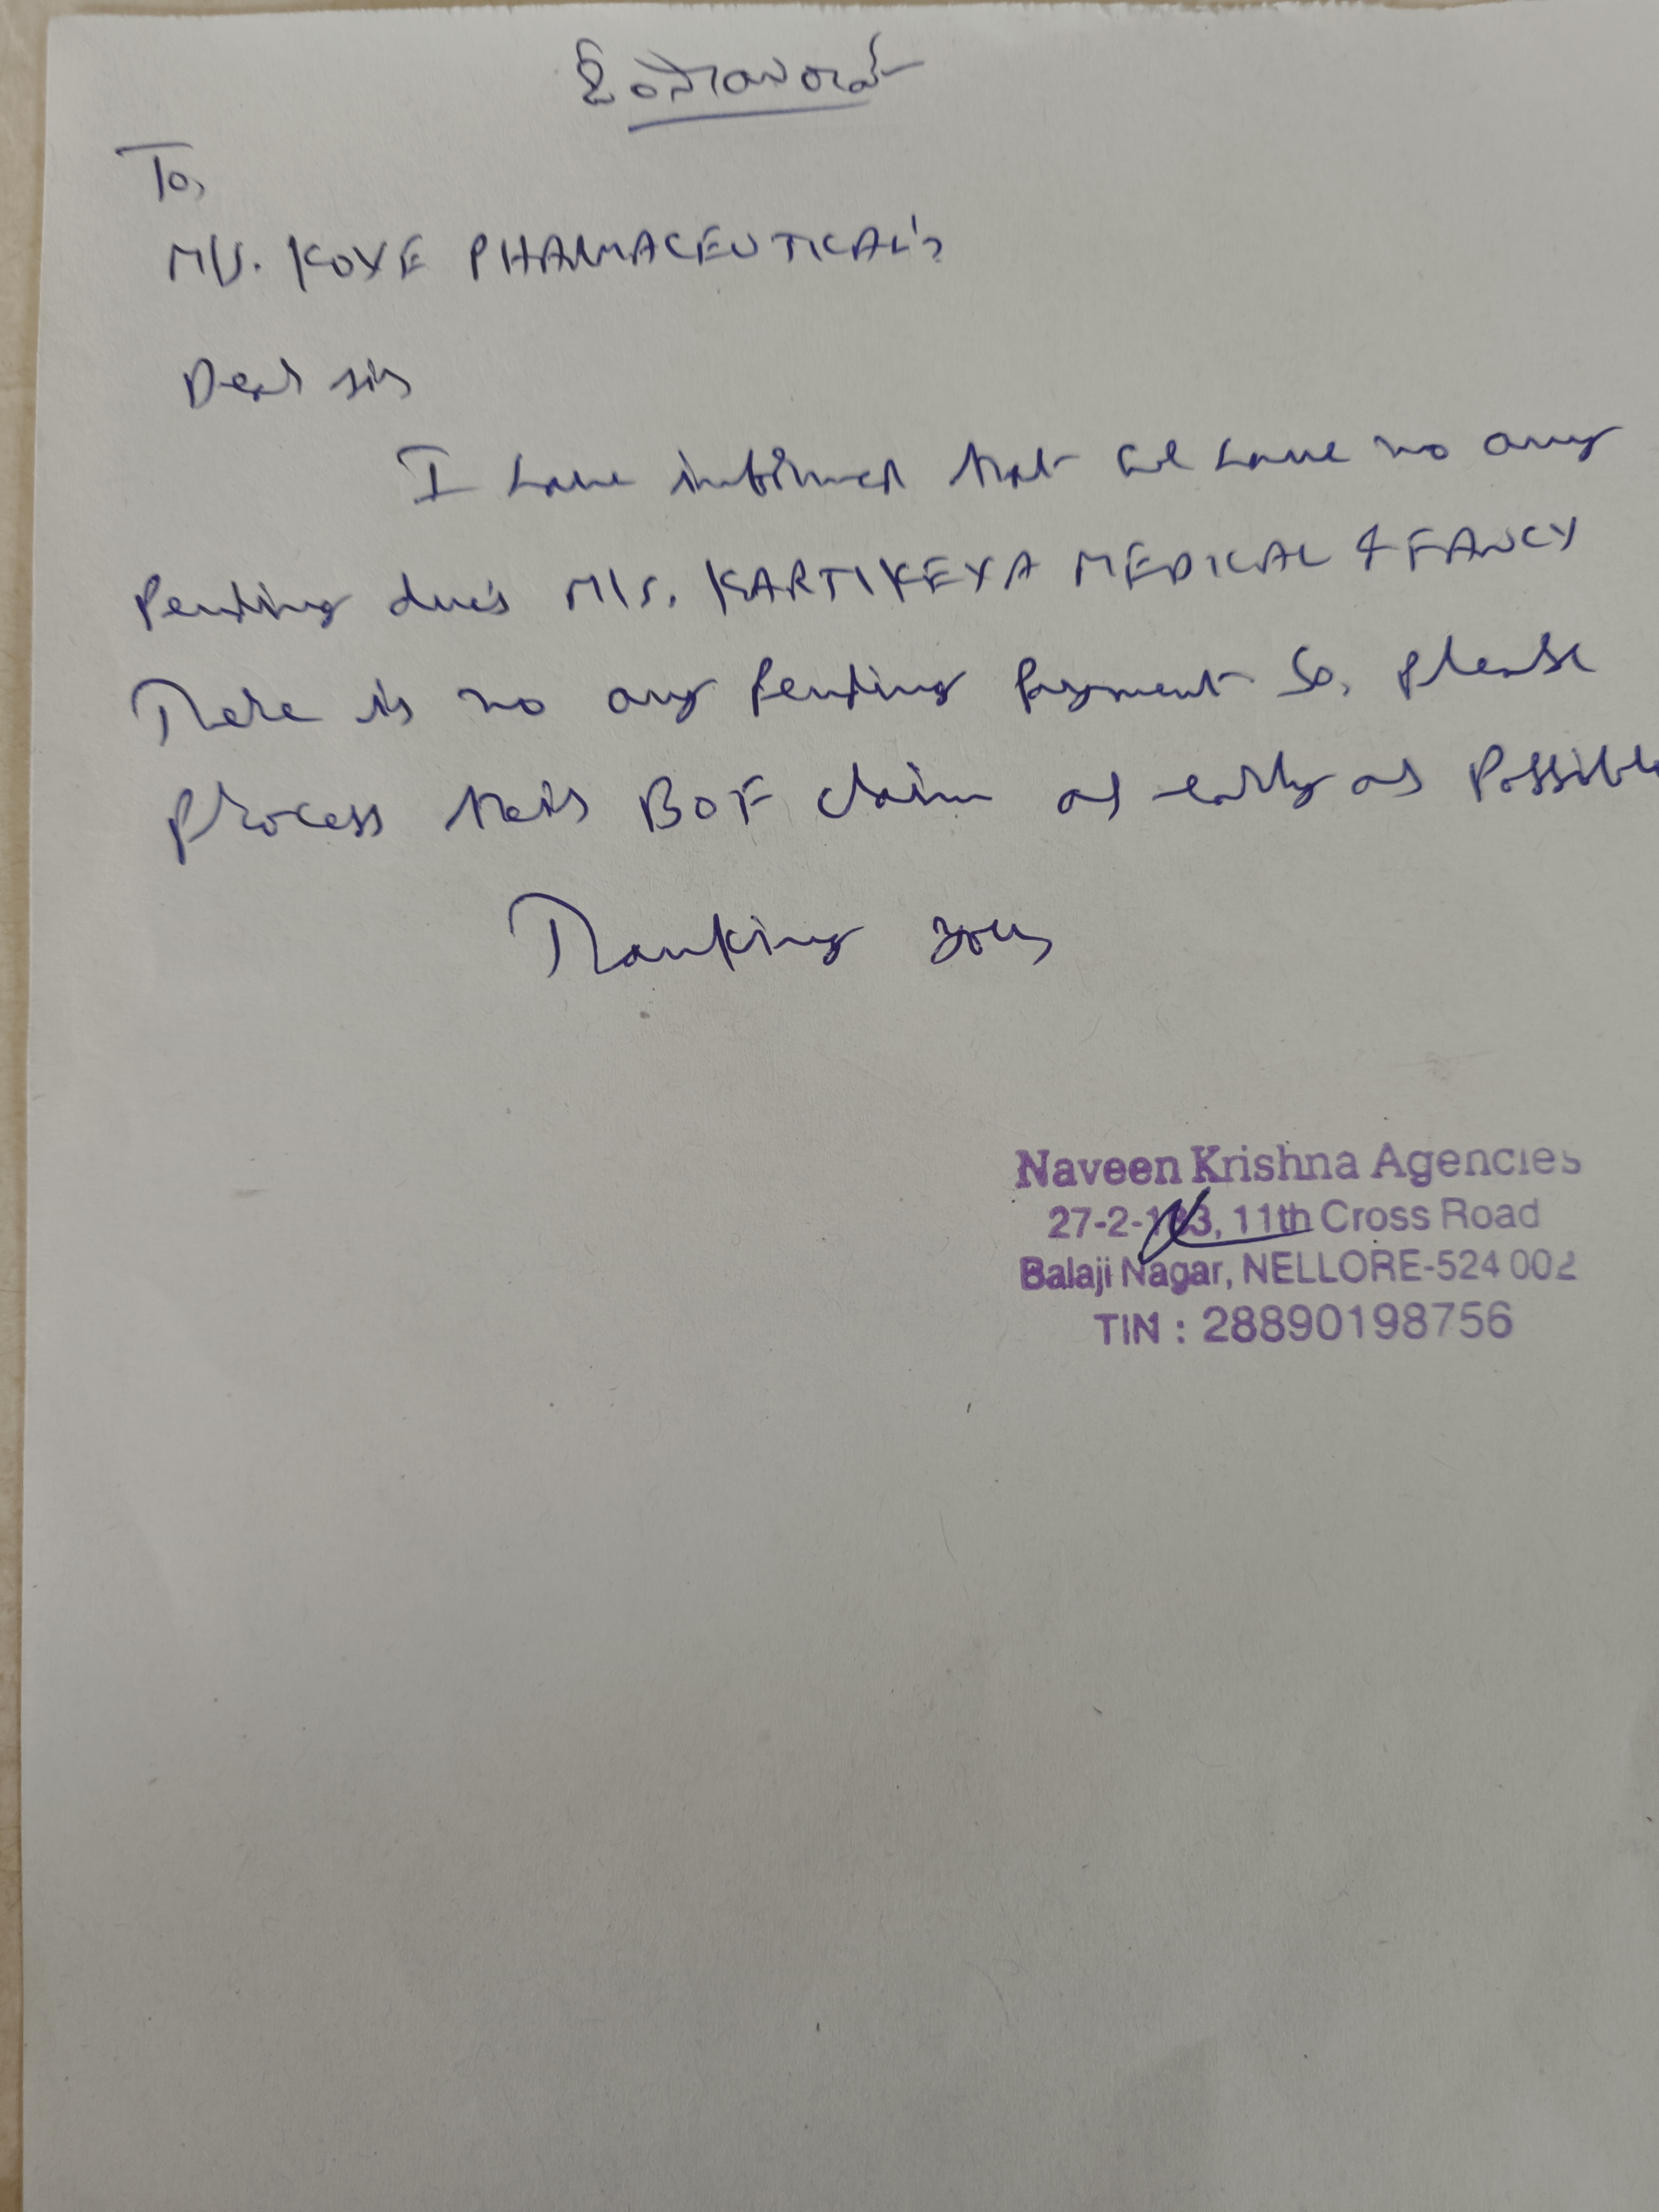 To,
M/s. KOYE PHARMACEUTICAL's
Dear sir,
I have informed that we have no any
Pending due's M/s. KARTIKEYA MEDICAL & FANCY
There is no any Pending Payment So, please
process this BOF claim as early as Possible
Thanking you,
Naveen Krishna Agencies
27-2-183, 11th Cross Road
Balaji Nagar, NELLORE-524 002
TIN : 28890198756